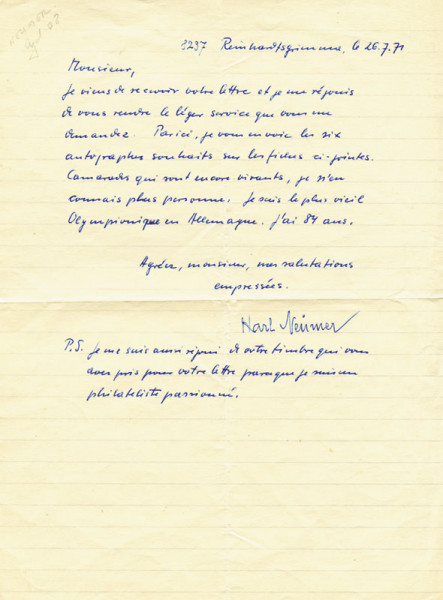 8237 Reinhardtsgrimma, le 26.7.71
Monsieur,
je viens de recevoir votre lettre et je me réjouis
de vous rendre le léger service que vous me
demandez. Par ici, je vous envoie les six
autographes souhaits sur les fiches ci-jointes.
Camarades qui sont encore vivants, je n'en
connais plus personne. Je suis le plus vieil
Olympionique en Allemagne. J'ai 84 ans.
Agréez, monsieur, mes salutations
empressées.
Karl Neumer
P.S. Je me suis aussi réjoui de votre timbre que vous
avez pris pour votre lettre parce que je suis un
philatéliste passionné.